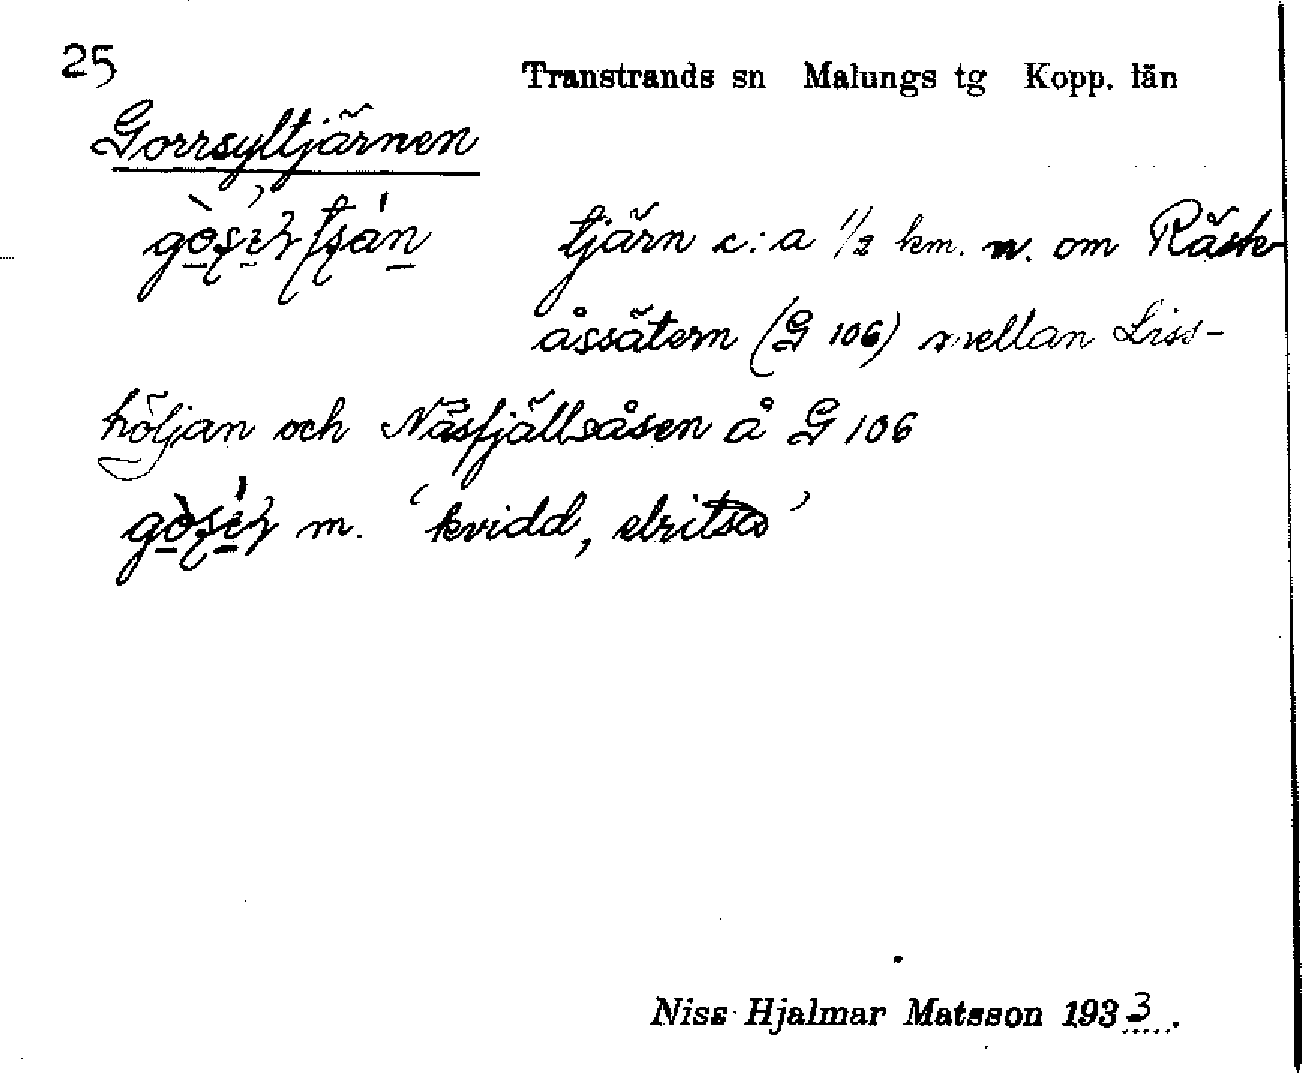 25
Transtrands sn Malungs tg Kopp. län
Gorrsyltjärnen
tjärn c:a 1/2 km. n. om Räsk-
åssätern (G 106) mellan Liss-
höljan och Näsfjällsåsen å G 106
m. 'kvidd, elritsa'
Niss Hjalmar Matsson 1933.